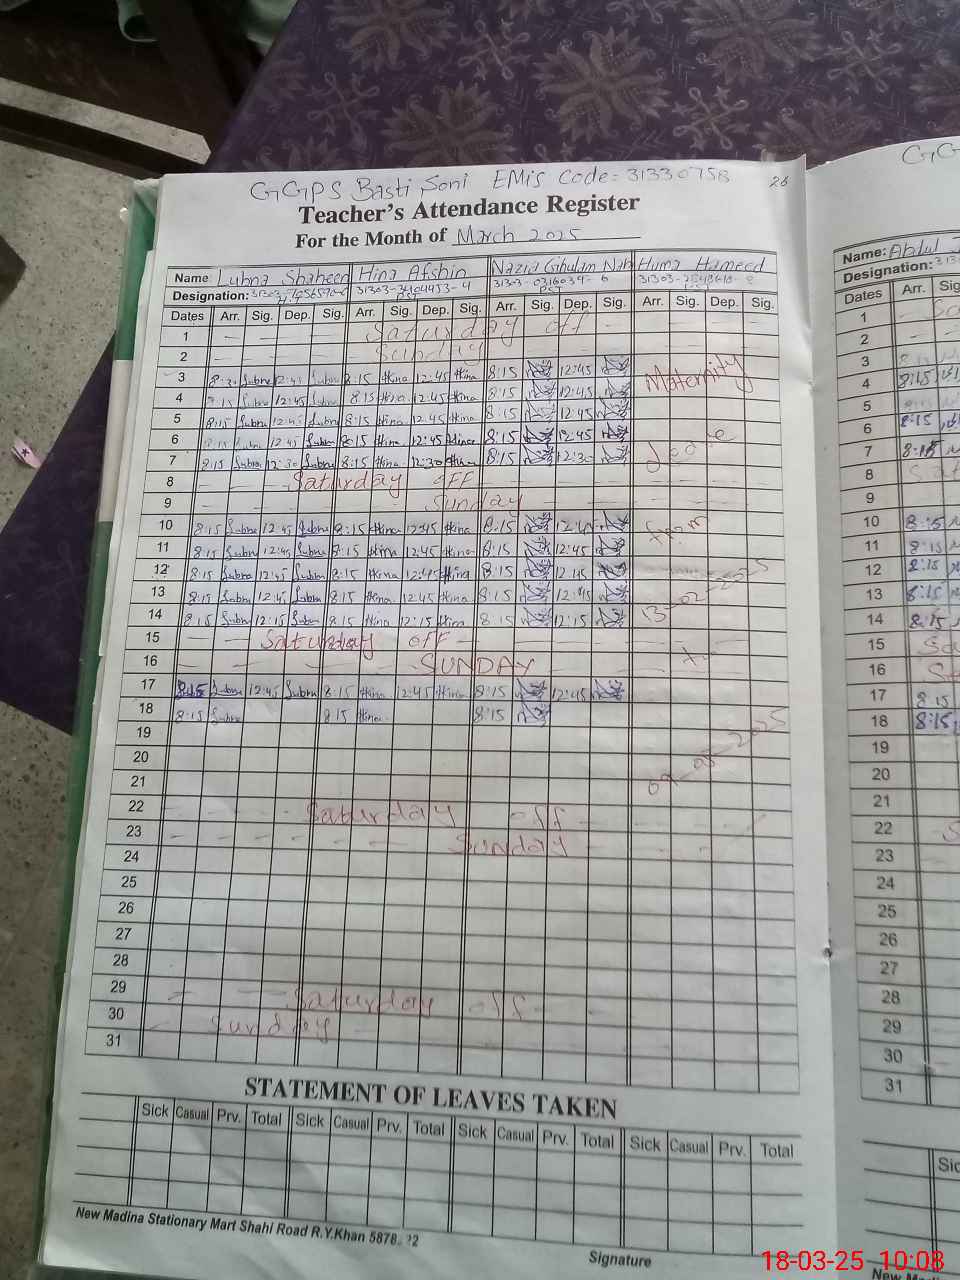 GGPS Basti Soni EMIS Code = 31330758
26
Teacher's Attendance Register
For the Month of March 2025
Name Lubna Shaheen Hina Afshin Nazia Ghulam Nabi Huma Hameed
Designation: PST PST
Dates Arr. Sig. Dep. Sig. Arr. Sig. Dep. Sig. Arr. Sig. Dep. Sig. Arr. Sig. Dep. Sig.
1 Saturday off
2 Sunday
3 8:30 Lubna 12:45 Lubna 8:15 Hina 12:45 Hina 8:15 12:45 Maternity
4 8:15 Lubna 12:45 Lubna 8:15 Hina 12:45 Hina 8:15 12:45
5 8:15 Lubna 12:45 Lubna 8:15 Hina 12:45 Hina 8:15 12:45
6 8:15 Lubna 12:45 Lubna 8:15 Hina 12:45 Hina 8:15 12:45
7 8:15 Lubna 12:30 Lubna 8:15 Hina 12:30 Hina 8:15 12:30
8 Saturday OFF
9 Sunday
10 8:15 Lubna 12:45 Lubna 8:15 Hina 12:45 Hina 8:15 12:45 from
11 8:15 Lubna 12:45 Lubna 8:15 Hina 12:45 Hina 8:15 12:45
12 8:15 Lubna 12:45 Lubna 8:15 Hina 12:45 Hina 8:15 12:45
13 8:15 Lubna 12:45 Lubna 8:15 Hina 12:45 Hina 8:15 12:45 13-02-2025
14 8:15 Lubna 12:15 Lubna 8:15 Hina 12:15 Hina 8:15 12:15
15 Saturday off
16 SUNDAY to
17 8:15 Lubna 12:45 Lubna 8:15 Hina 12:45 Hina 8:15 12:45
18 8:15 Lubna 8:15 Hina 8:15
19
20
21
22 Saturday off
23 Sunday
24
25
26
27
28
29 Saturday off
30 Sunday
31
STATEMENT OF LEAVES TAKEN
Sick Casual Prv. Total Sick Casual Prv. Total Sick Casual Prv. Total Sick Casual Prv. Total
New Madina Stationary Mart Shahi Road R.Y.Khan
Signature
Name: Abdul
Designation:
Dates Arr.
1
2
3 8:15
4 8:15
5 8:15
6 8:15
7 8:15
8
9
10 8:15
11 8:15
12 8:15
13 8:15
14 8:15
15
16
17 8:15
18 8:15
19
20
21
22
23
24
25
26
27
28
29
30
31
18-03-25 10:08